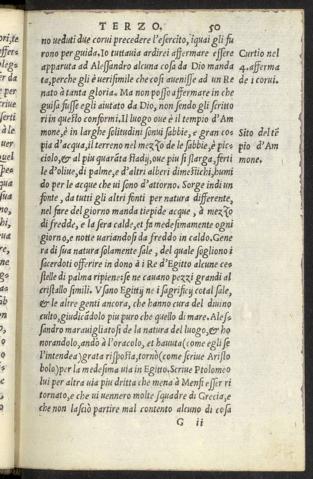 TERZO. 50
no ueduti due corui precedere l'esercito, iquai gli fu
rono per guida. Io tuttauia ardirei affermare essere
apparuta ad Alessandro alcuna cosa da Dio manda
ta, perche gli è uerisimile che cosi auenisse ad un Re
nato à tanta gloria. Ma non posso affermare in che
guisa fusse egli aiutato da Dio, non sendo gli scritto
ri in questo conformi. Il luogo oue è il tempio d'Am
mone, è in larghe solitudini sonui sabbie, e gran co
pia d'acqua, il terreno nel mezzo de le sabbie, è pic
ciolo, & al piu quarāta stadij, oue piu si slarga, ferti
le d'oliue, di palme, e d'altri alberi dimestichi, humi
do per le acque che ui sono d'attorno. Sorge indi un
fonte, da tutti gli altri fonti per natura differente,
nel fare del giorno manda tiepide acque, à mezzo
di fredde, e la sera calde, et fa medesimamente ogni
giorno, e notte uariandosi da freddo in caldo. Gene
ra di sua natura solamente sale, del quale sogliono i
sacerdoti offrire in dono à i Re d'Egitto alcune ce
stelle di palma ripiene: se ne cauano pezzi grandi al
cristallo simili. Vsano Egittij ne i sagrificij cotal sale,
& le altre genti ancora, che hanno cura del diuino
culto, giudicādolo piu puro che quello di mare. Ales
sandro marauigliatosi de la natura del luogo, & ho
norandolo, andò à l'oracolo, et hauuta (come egli se
l'intendea) grata risposta, tornò (come scriue Aristo
bolo) per la medesima uia in Egitto. Scriue Ptolomeo
lui per altra uia piu dritta che mena à Menfi esser ri
tornato, e che ui uennero molte squadre di Grecia, e
che non lasciò partire mal contento alcuno di cosa
G ii
Curtio nel
4. afferma
de i corui.
Sito del tē
pio d'Am
mone.